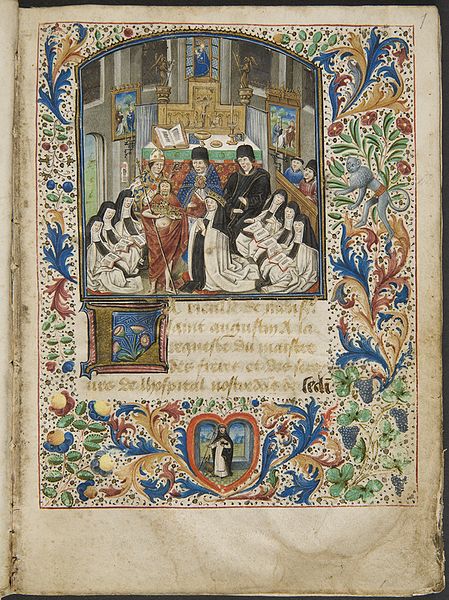 1
La Rieulle de monsr
saint augustin A la
requeste du maistre
des freres et des seurs
de lhospital nostre d de Seclin